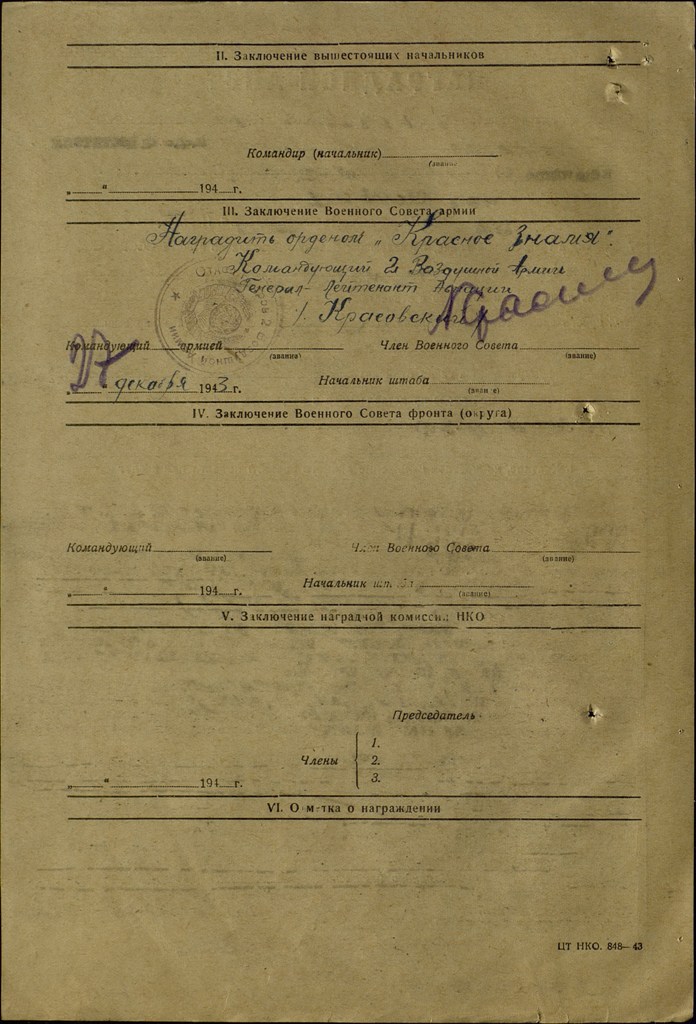 II. Заключение вышестоящих начальников
Командир (начальник)
(звание
„ “ 194 г.
III. Заключение Военного Совета армии
Наградить орденом „Красное Знамя".
Командующий 2 Воздушной Армии
Генерал-Лейтенант Авиации
/. Красовский
Командующий армией Член Военного Совета
(звание) (звание)
27 декабря 1943 г. Начальник штаба
(звание)
IV. Заключение Военного Совета фронта (округа)
Командующий Член Военного Совета
(звание) (звание)
„ “ 194 г. Начальник шт
(звание)
V. Заключение наградной комиссии НКО
Председатель
1.
Члены 2.
3.
„ “ 194 г.
VI. О м тка о награждении
ЦТ НКО. 848—43